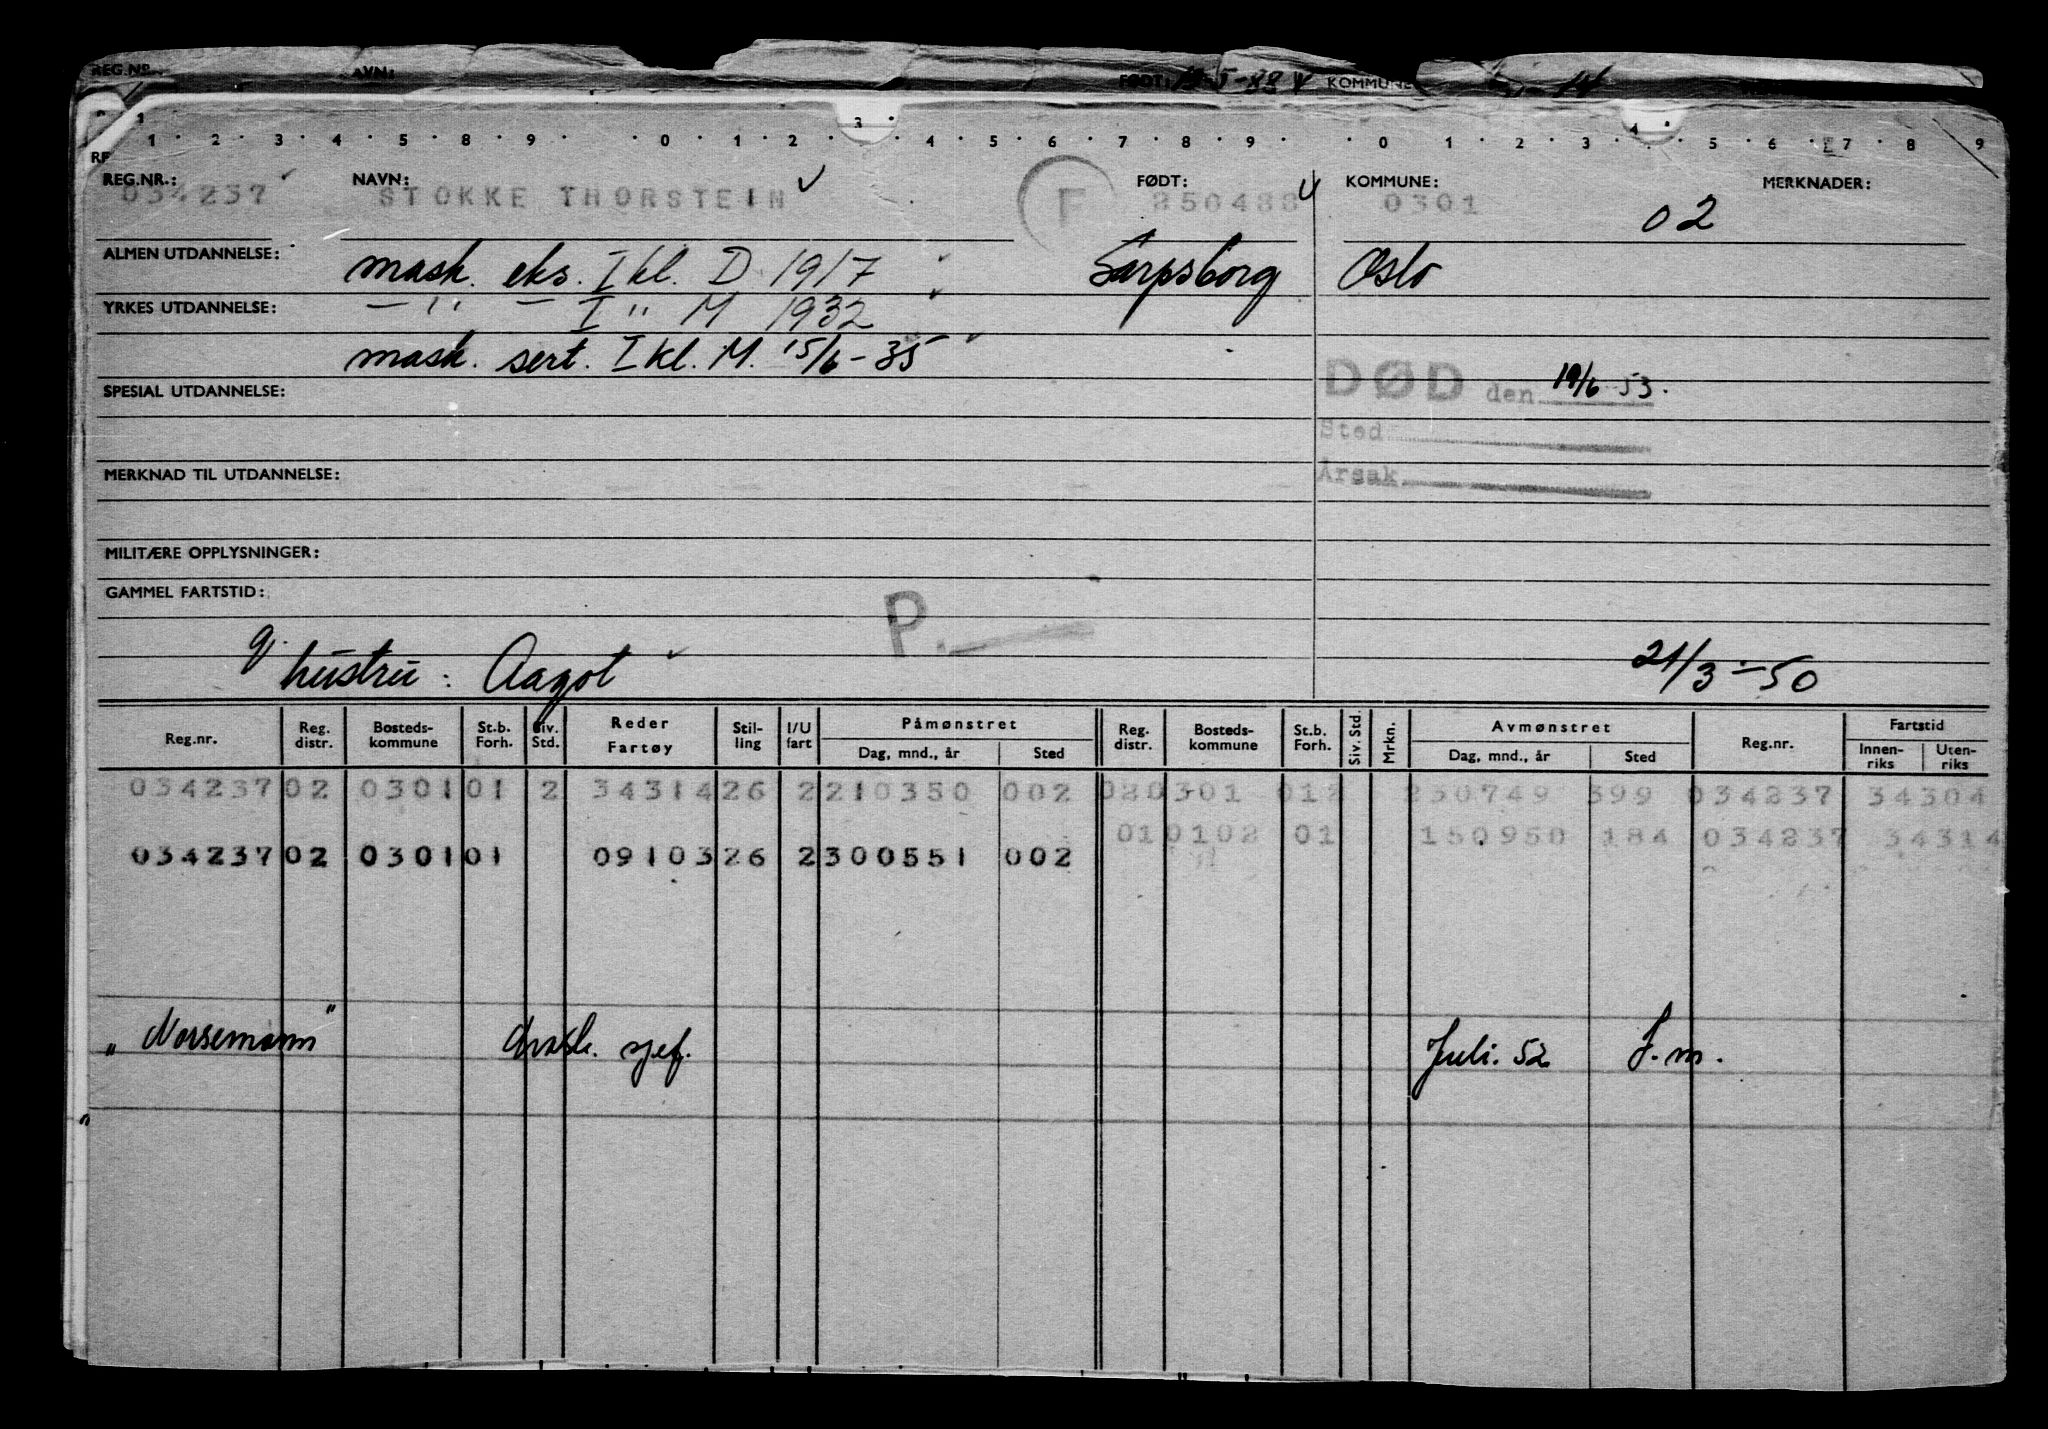 REG.NR. NAVN: FØDT: 5-88 KOMMUNE
1 2 3 4 5 8 9 0 1 2 3 4 5 6 7 8 9 0 1 2 3 4 5 6 7 8 9
REG.NR.: NAVN: FØDT: KOMMUNE: MERKNADER:
034237 STOKKE THORSTEIN F 250488 0301 02
ALMEN UTDANNELSE: mask. eks. I kl. D 1917 Sarpsborg Oslo
YRKES UTDANNELSE: — " — I " M 1932
mask. sert. I kl. M. 15/6-35
SPESIAL UTDANNELSE: DØD den 19/6 53.
Sted
MERKNAD TIL UTDANNELSE: Årsak
MILITÆRE OPPLYSNINGER:
GAMMEL FARTSTID: P.
g. hustru: Aagot 21/3-50
Reg.nr. Reg. distr. Bosteds-kommune St.b. Forh. Siv. Std. Reder Fartøy Stil-ling I/U fart Påmønstret Dag, mnd., år Sted Reg. distr. Bosteds-kommune St.b. Forh. Siv. Std. Mrkn. Avmønstret Dag, mnd., år Sted Reg.nr. Fartstid Innen-riks Uten-riks
034237 02 0301 01 2 34314 26 2 210350 002 02 0301 012 230749 399 034237 34304
01 0102 01 150950 184 034237 34314
034237 02 0301 01 09103 26 2 300551 002
"Norsemann" mask. sjef. Juli. 52 F.m.